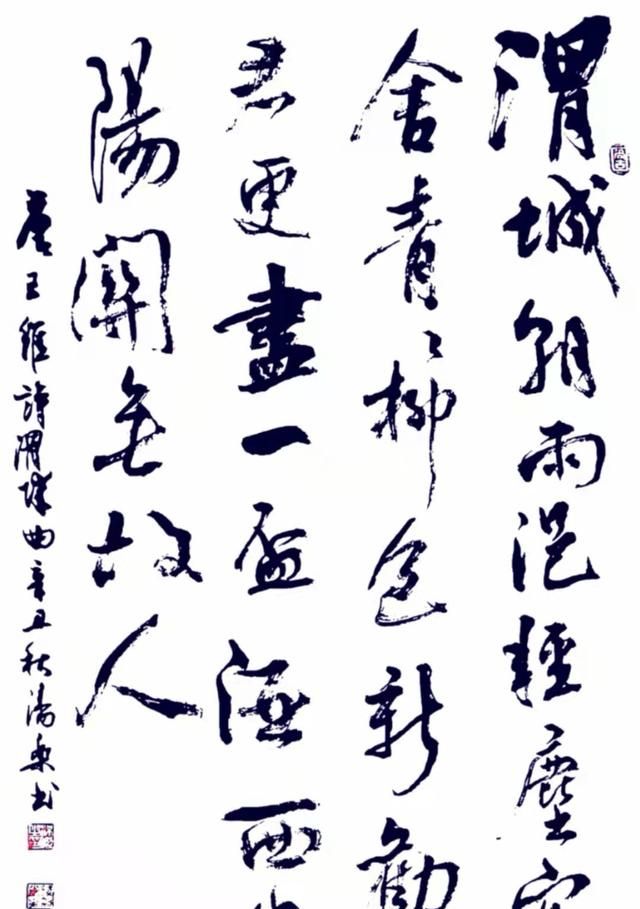 渭城朝雨浥輕塵
舍青々柳色新勸
君更盡一盃酒西
陽關無故人
王維詩渭城曲辛丑秋書